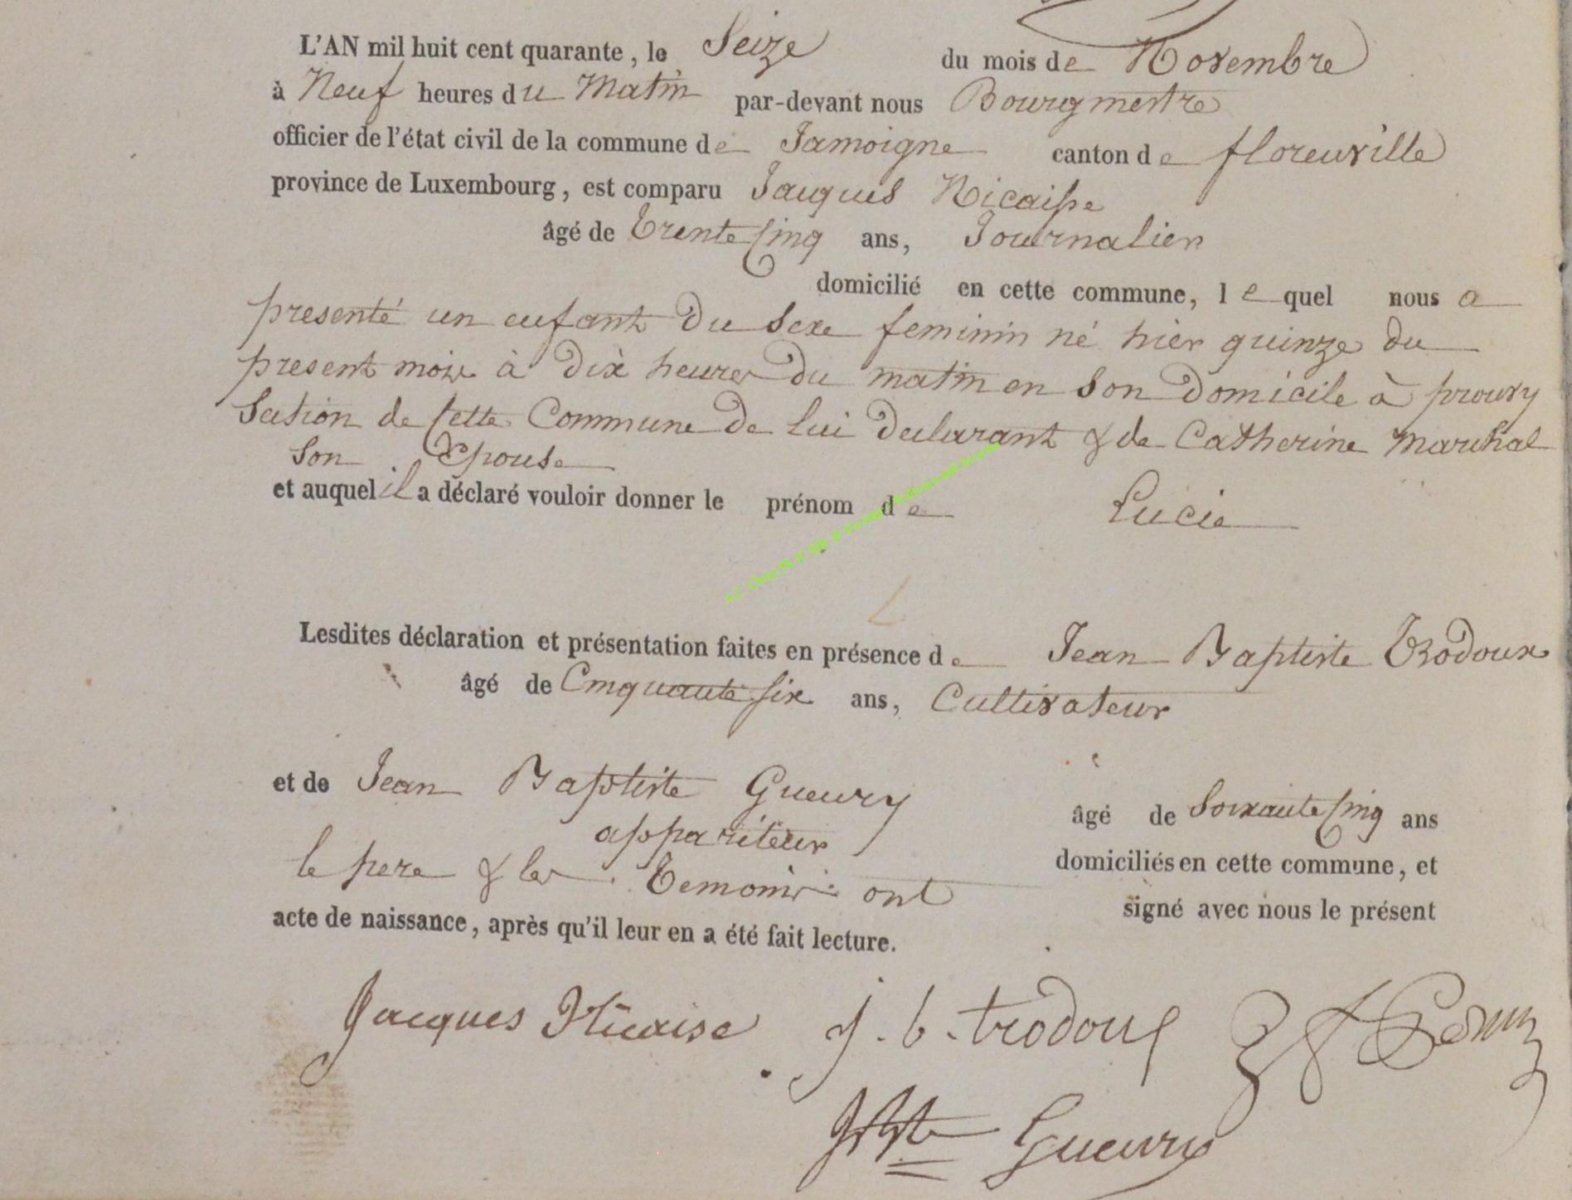 L'AN mil huit cent quarante, le Seize du mois de Novembre
à Neuf heures du Matin par-devant nous Bourgmestre
officier de l'état civil de la commune de Jamoigne canton de florenville
province de Luxembourg, est comparu Jacques Nicaisse
âgé de Trente Cinq ans, Journalier
domicilié en cette commune, lequel nous a
presenté un enfant du sexe feminin né hier quinze du
present mois à dix heures du matin en son domicile à prouvy
Section de Cette Commune de lui declarant & de Catherine Marchal
Son Epouse
et auquel il a déclaré vouloir donner le prénom de Lucie
Lesdites déclaration et présentation faites en présence de Jean Baptiste Trodoux
âgé de Cinquante six ans, Cultivateur
et de Jean Baptiste Gueury âgé de Soixante Cinq ans
appariteur domiciliés en cette commune, et
le pere & les Temoins ont signé avec nous le présent
acte de naissance, après qu'il leur en a été fait lecture.
Jacques Nicaise j. b. trodoux
Gueury